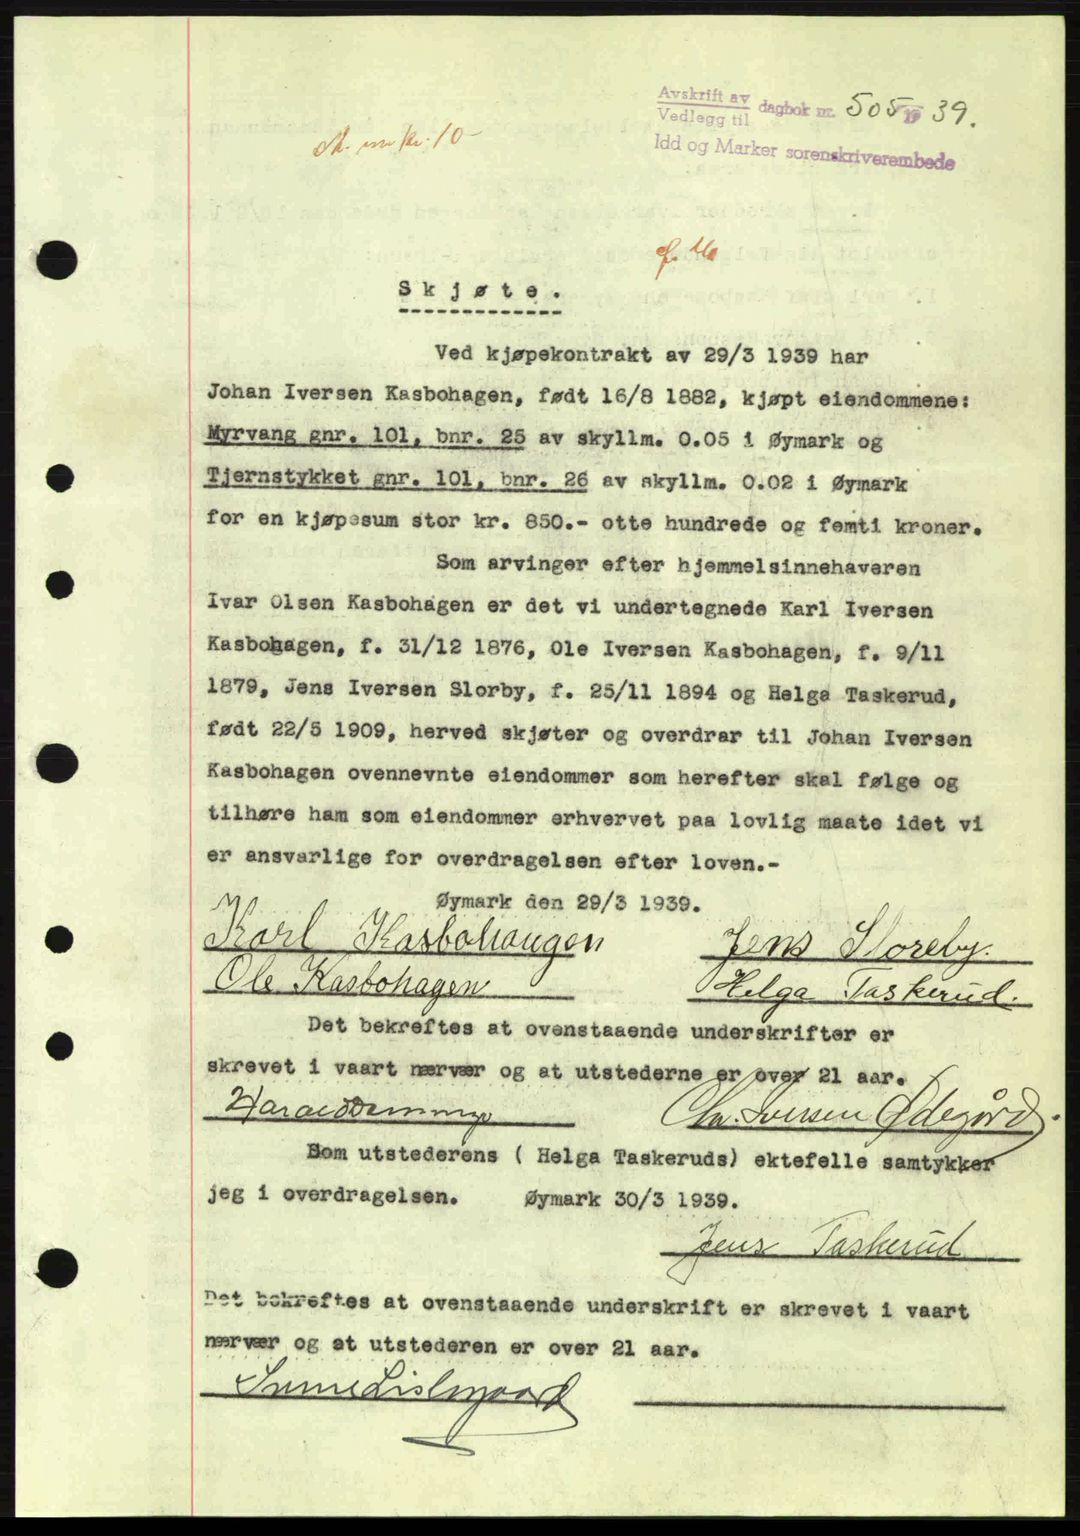 Avskrift av
Vedlegg til
dagbok nr. 505 1939.
Idd og Marker sorenskriverembede
kr. 10-
Skjøte.
Ved kjøpekontrakt av 29/3 1939 har
Johan Iversen Kasbohagen, født 16/8 1882, kjøpt eiendommene:
Myrvang gnr. 101, bnr. 25 av skyllm. 0.05 i Øymark og
Tjernstykket gnr. 101, bnr. 26 av skyllm. 0.02 i Øymark
for en kjøpesum stor kr. 850.- otte hundrede og femti kroner.
Som arvinger efter hjemmelsinnehaveren
Ivar Olsen Kasbohagen er det vi undertegnede Karl Iversen
Kasbohagen, f. 31/12 1876, Ole Iversen Kasbohagen, f. 9/11
1879, Jens Iversen Slorby, f. 25/11 1894 og Helga Taskerud,
født 22/5 1909, herved skjøter og overdrar til Johan Iversen
Kasbohagen ovennevnte eiendommer som herefter skal følge og
tilhøre ham som eiendommer erhvervet paa lovlig maate idet vi
er ansvarlige for overdragelsen efter loven.-
Øymark den 29/3 1939.
Karl Kasbohaugen Jens Sloreby.
Ole Kasbohagen Helga Taskerud.
Det bekreftes at ovenstaaende underskrifter er
skrevet i vaart nærvær og at utstederne er over 21 aar.
Iversen Ødegård.
Som utstederens ( Helga Taskeruds) ektefelle samtykker
jeg i overdragelsen. Øymark 30/3 1939.
Jens Taskerud
Det bekreftes at ovenstaaende underskrift er skrevet i vaart
nærvær og at utstederen er over 21 aar.